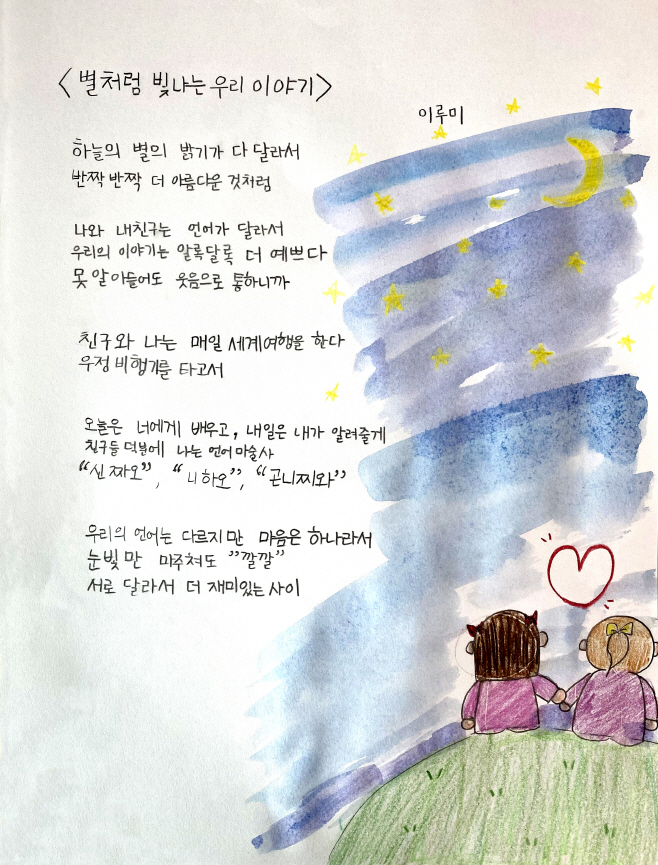 <별처럼 빛나는 우리 이야기>
이루미
하늘의 별의 밝기가 다 달라서
반짝 반짝 더 아름다운 것처럼
나와 내친구는 언어가 달라서
우리의 이야기는 알록달록 더 예쁘다
못 알아들어도 웃음으로 통하니까
친구와 나는 매일 세계여행을 한다
우정 비행기를 타고서
오늘은 너에게 배우고, 내일은 내가 알려줄게
친구들 덕분에 나는 언어 마술사
“신 짜오”, “니 하오”, “곤니찌와”
우리의 언어는 다르지만 마음은 하나라서
눈빛만 마주쳐도 ”깔깔”
서로 달라서 더 재미있는 사이